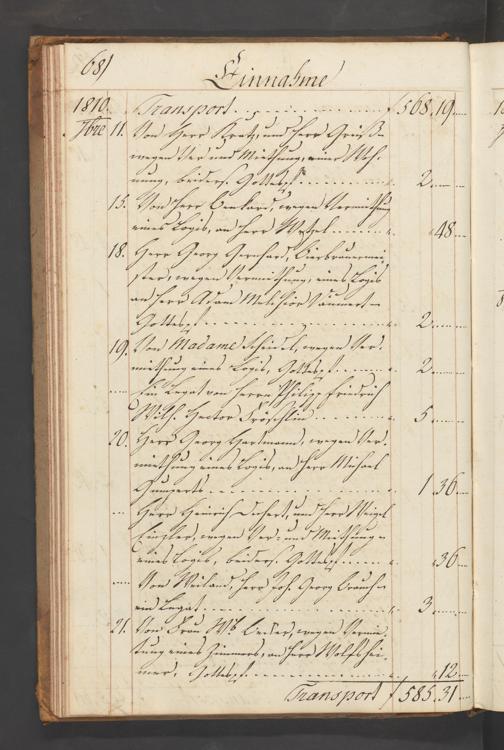 68)
Einnahme
1810. Transport . . . . . . . . . f 568. 19
7bre 11. Von Herr Kratz, und Herr Grüße
wegen Ver und Miethung, eines Woh-
nung, beiders. Gottespf. . . . . . . . . „ 2.
15. Von Herr Benkard, wegen Vermiethung
eines Logis, an Herr Wetzel . . . . . „ „ 48
18. Herr Georg Gerhard, Bierbrauermei-
ster, wegen Vermiethung, eines Logis
an Herr Adam Melchior
Gottespf. . . . . . . . . . „ 2.
19. Von Madame Scheidel, wegen Ver-
miethung eines Logis, Gottespf. . . . „ 2.
Ein Legat von Herrn Philipp Friedrich
Wilh. Hector . . . . . „ 5
20. Herr Georg Hartmann, wegen Ver-
miethung eines Logis, an Herr Michael
. . . . . . . . „ 1. 36
Herr Heinrich und Herr
wegen Ver- und Miethung
eines Logis, beiders. Gottespf. . . . . „ „ 36
Von Weiland, Herr Joh. Georg
ein Legat . . . . . . . . . „ 3
21. Von Frau Wb. wegen Vermie-
tung eines Zimmers, an Herr Wolfshei-
mer, Gottespf. . . . . . . . „ „ 12
Transport f 585. 31